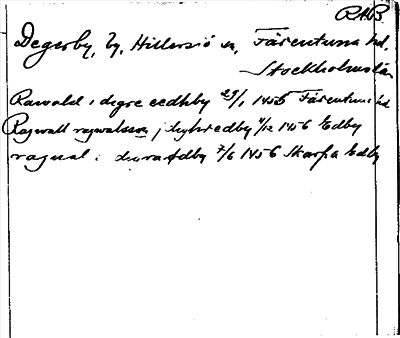 RAB.
Degerby, by, Hillersjö sn, Färentuna hd,
Stockholms län
Rawald i degre eedhby 29/1 1455 Färentuna hd
Ragwalt ragwalsson i dighredby 4/12 1456 Edby
ragual i 7/6 1456 Skarpa Edby